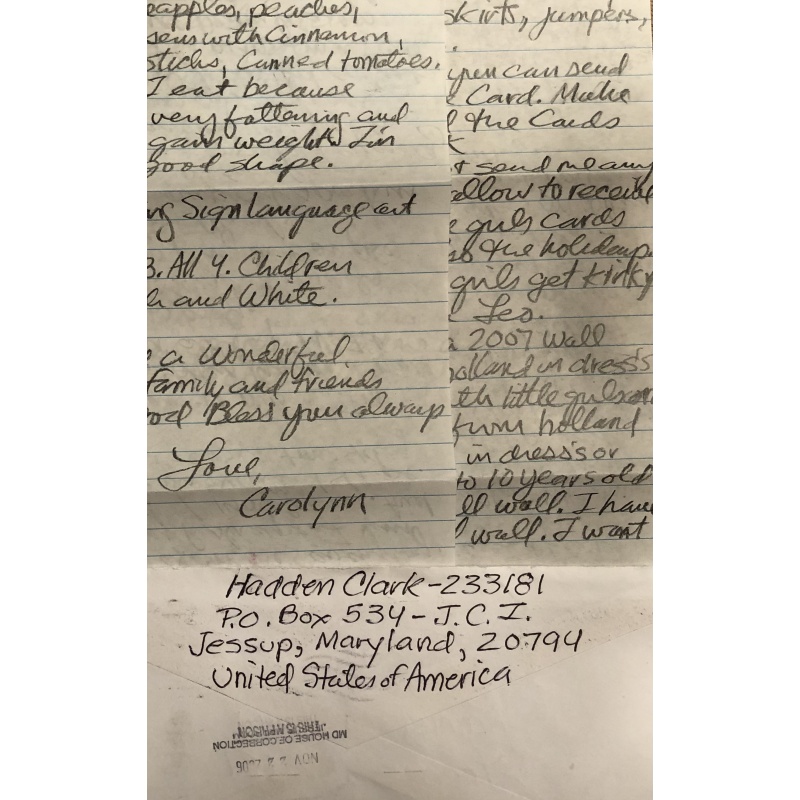 eapples, peaches,
sens with Cinnamon,
sticks, Canned tomatoes.
I eat because
very fattening and
gain weight. I'm
good shape.
ng Sign language art
3. All 4. Children
and White.
a Wonderful
family and friends
od Bless you always
Love,
Carolynn
skirts, jumpers,
you can send
Card. Make
the Cards
t send me any
allow to receive
girls cards
so the holidays.
girls get kinky
Leo.
a 2007 Wall
holland in dress's
th little girls on
from holland
in dress's or
to 10 years old
ll wall. I have
wall. I want
Hadden Clark-233181
P.O. Box 534-J.C.I.
Jessup, Maryland, 20794
United States of America
MD HOUSE OF CORRECTION
"THIS IS A PRISON"
NOV 22 2006